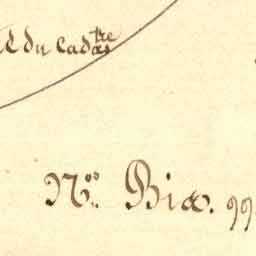 du Cadastre
N.º Bis. 99